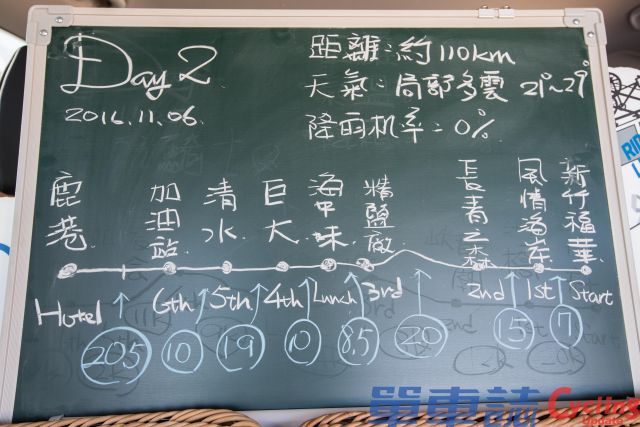 Day 2
2016.11.06.
距離:約110km
天氣:局部多雲 21°~29°
降雨机率:0%
鹿港.
加油站.
清水.
巨大.
海中味.
精鹽廠
長青之森
風情海岸
新竹福華
Hotel
6th
5th.
4th
Lunch
3rd
2nd
1st
Start
20.5
10
19
10
8.5
20
15
7
單車誌 Cycling
Update